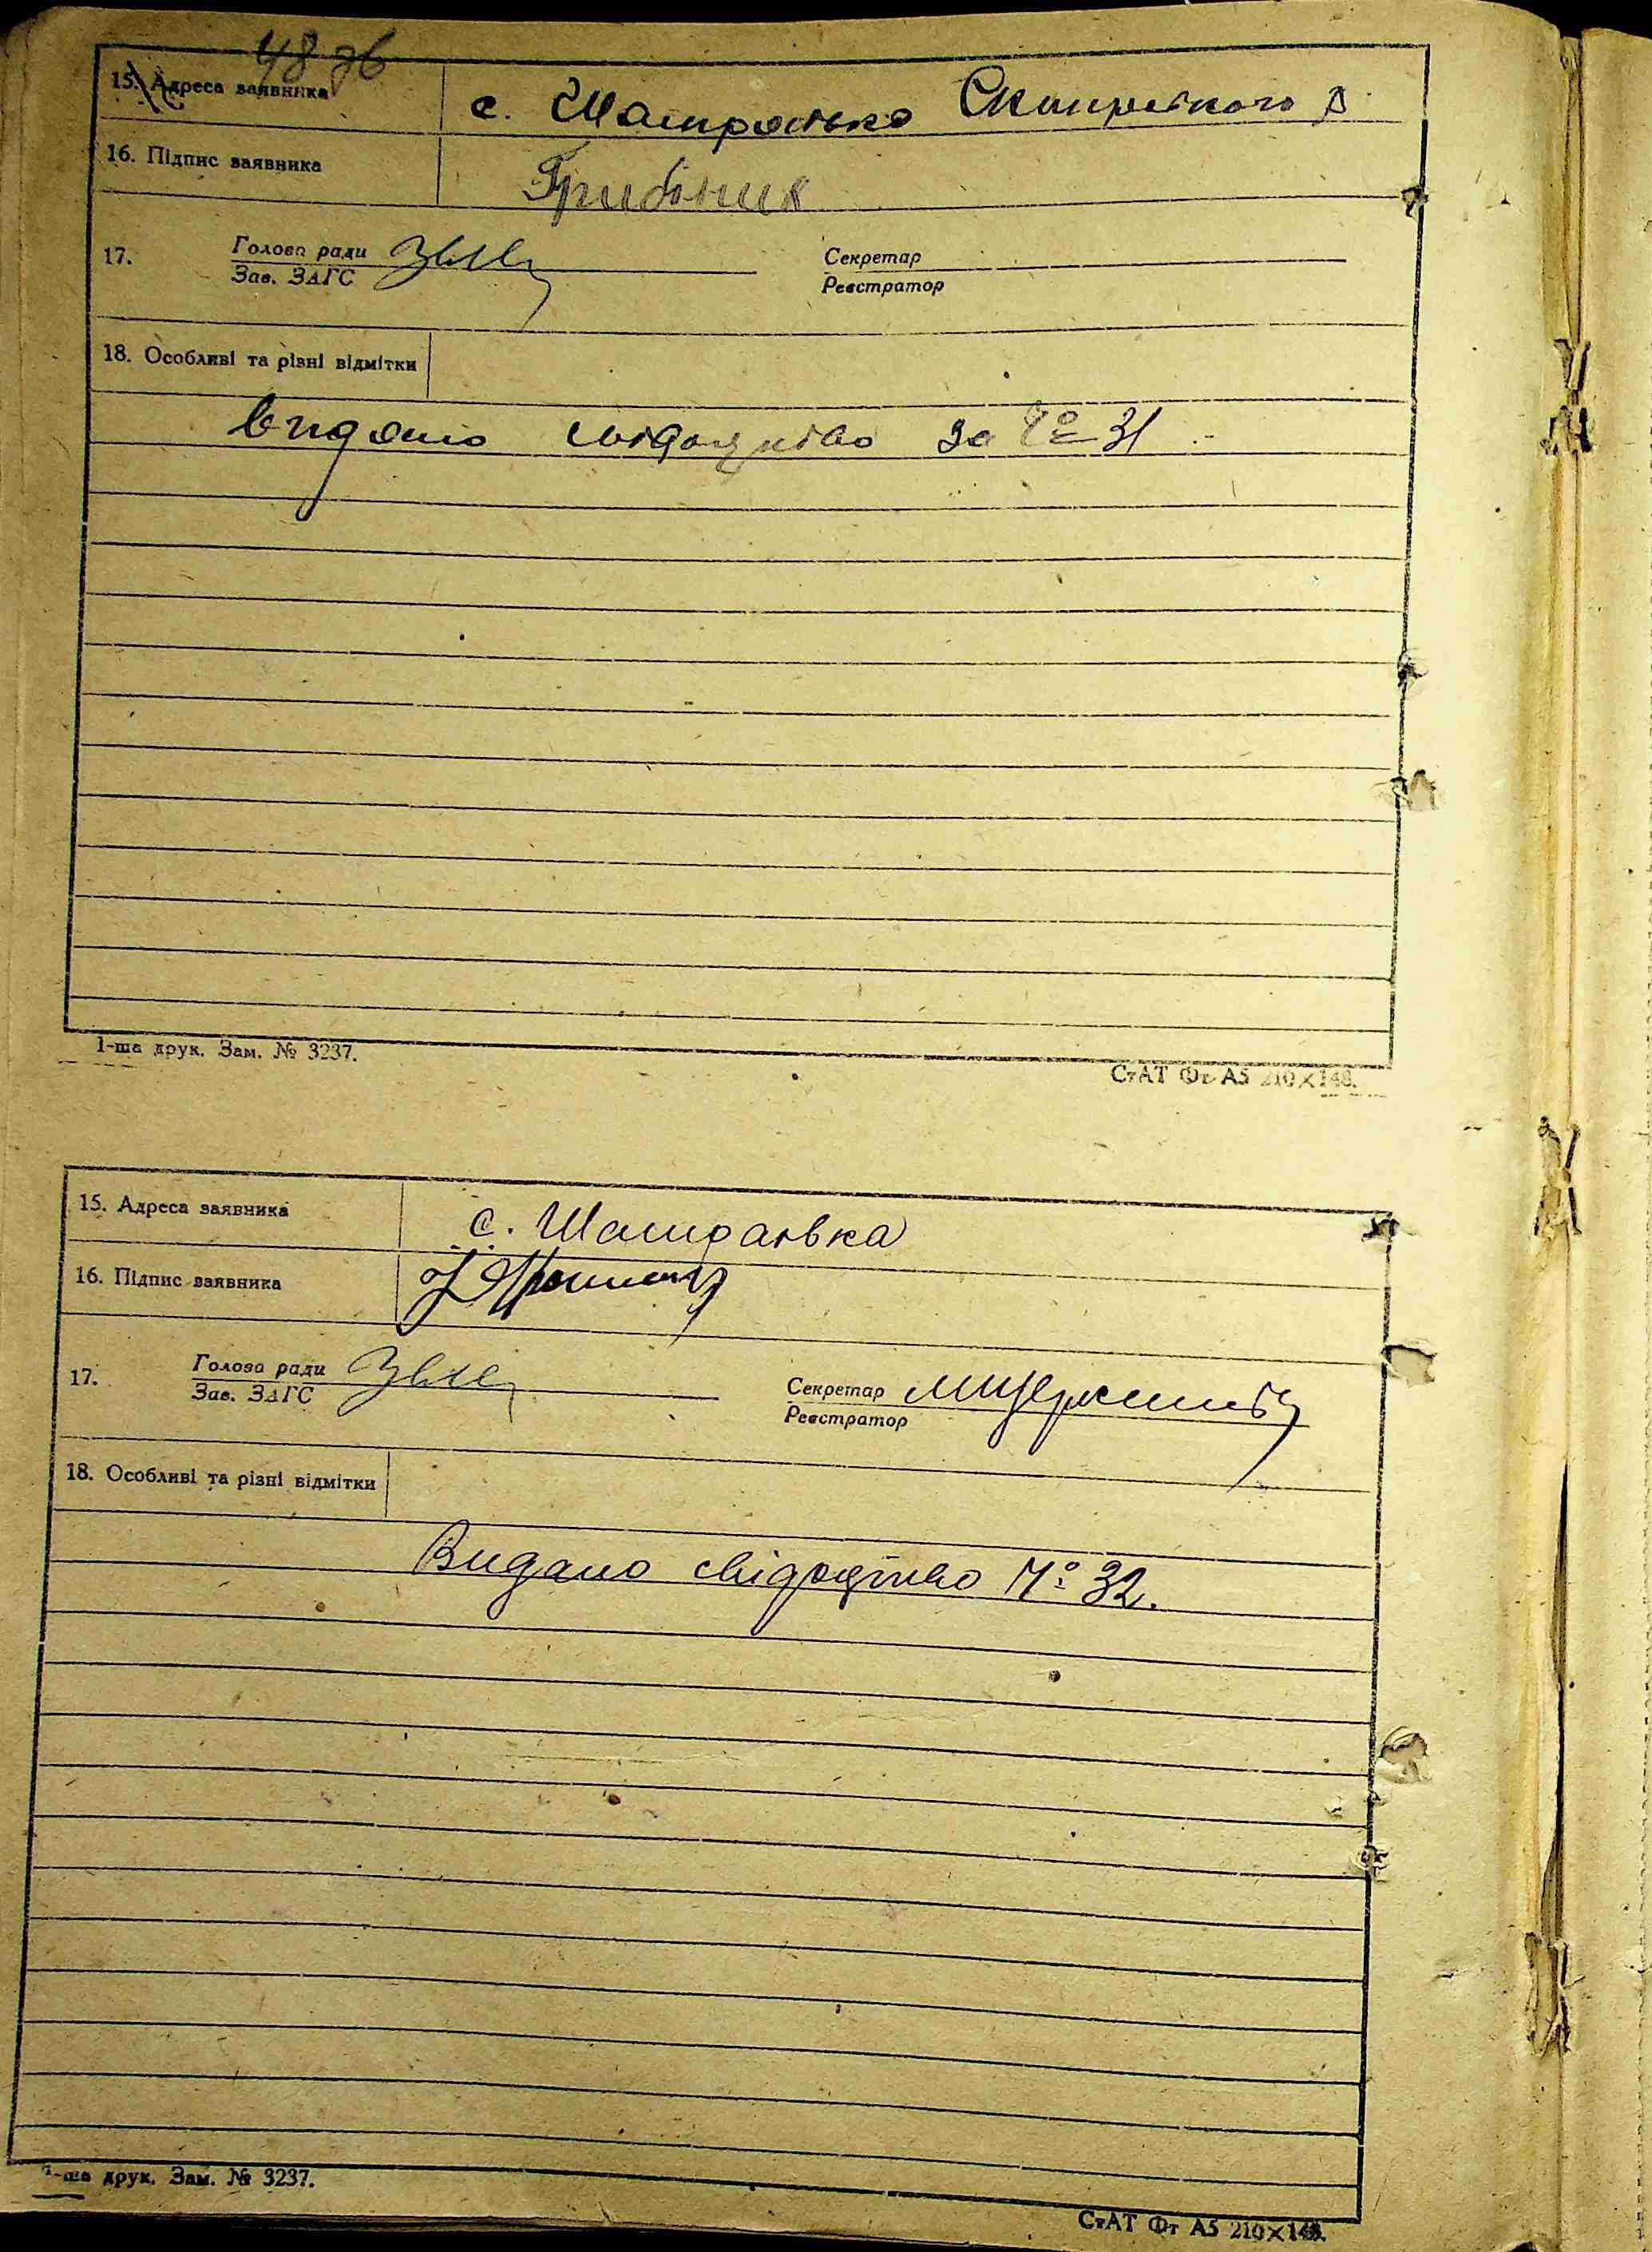 48 зв
15. Адреса заявника с. Шамраївка Сквирського р
16. Підпис заявника Грибник
17. Голова ради
Зав. ЗАГС
Секретар
Реєстратор
18. Особливі та різні відмітки
видано свідоцтво за № 31
1-ша друк. Зам. № 3237.
СтАТ Фт А5 210×148.
15. Адреса заявника с. Шамраївка
16. Підпис заявника
17. Голова ради
Зав. ЗАГС
Секретар
Реєстратор
18. Особливі та різні відмітки
Видано свідоцтво № 32.
1-ша друк. Зам. № 3237.
СтАТ Фт А5 210×148.